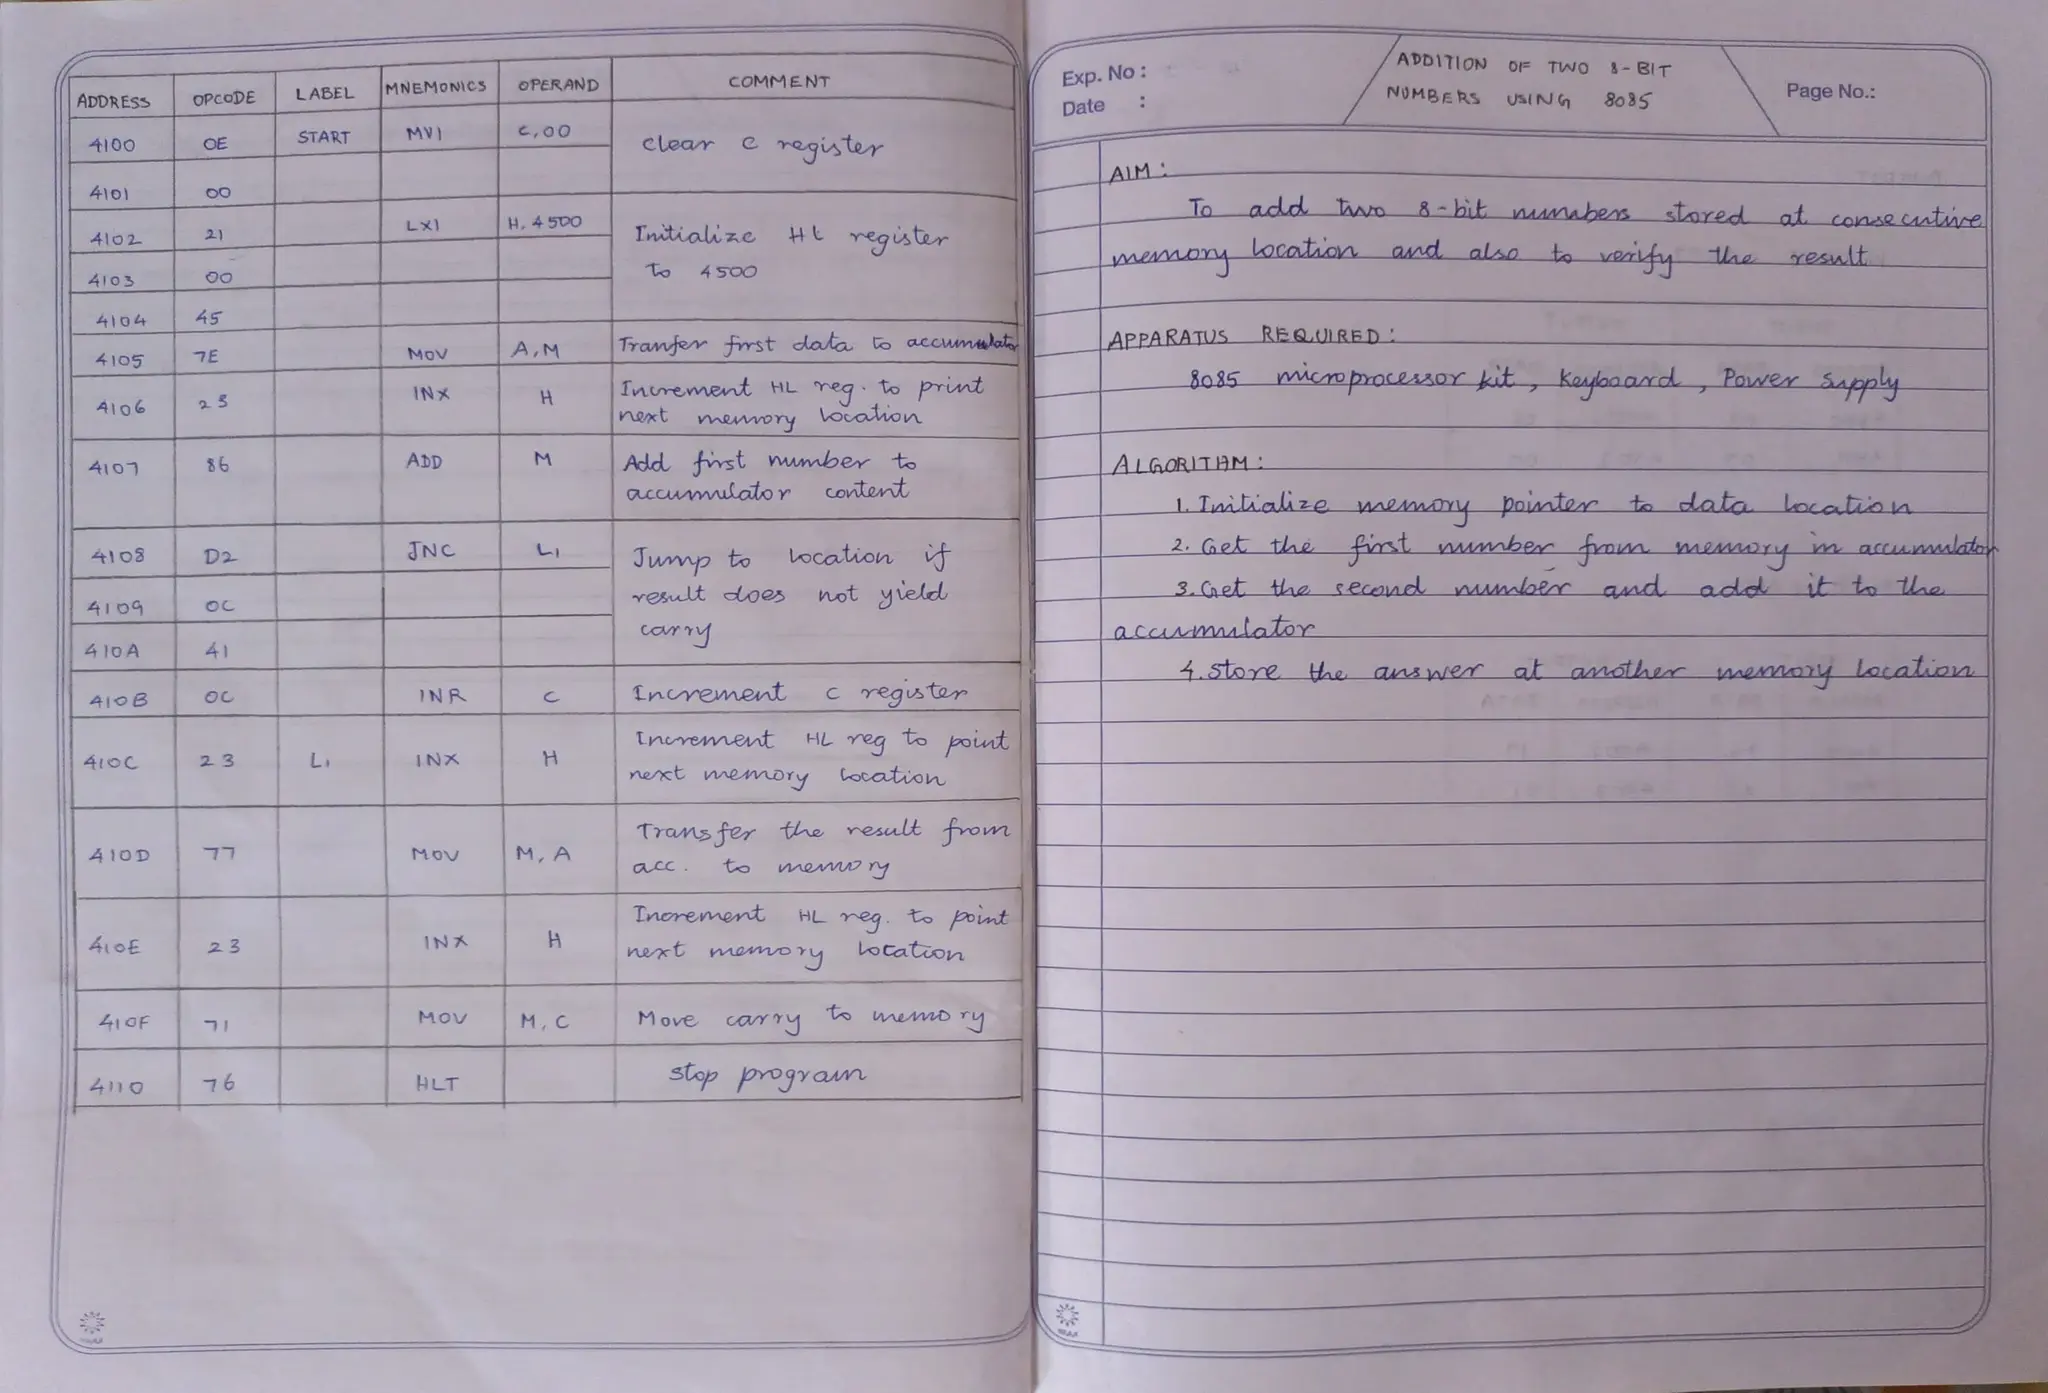 ADDRESS OPCODE LABEL MNEMONICS OPERAND COMMENT
4100 0E START MVI C,00 clear C register
4101 00
4102 21 LXI H, 4500 Initialize HL register
4103 00 to 4500
4104 45
4105 7E MOV A,M Tranfer first data to accumulator
4106 23 INX H Increment HL reg. to print
next memory location
4107 86 ADD M Add first number to
accumulator content
4108 D2 JNC L1 Jump to location if
4109 0C result does not yield
410A 41 carry
410B 0C INR C Increment C register
410C 23 L1 INX H Increment HL reg to point
next memory location
410D 77 MOV M, A Transfer the result from
acc. to memory
410E 23 INX H Increment HL reg. to point
next memory location
410F 71 MOV M, C Move carry to memory
4110 76 HLT stop program
Exp. No :
Date :
ADDITION OF TWO 8-BIT
NUMBERS USING 8085
Page No.:
AIM :
To add two 8-bit numbers stored at consecutive
memory location and also to verify the result
APPARATUS REQUIRED :
8085 microprocessor kit, Keyboard, Power Supply
ALGORITHM :
1. Initialize memory pointer to data location
2. Get the first number from memory in accumulator
3. Get the second number and add it to the
accumulator
4. Store the answer at another memory location